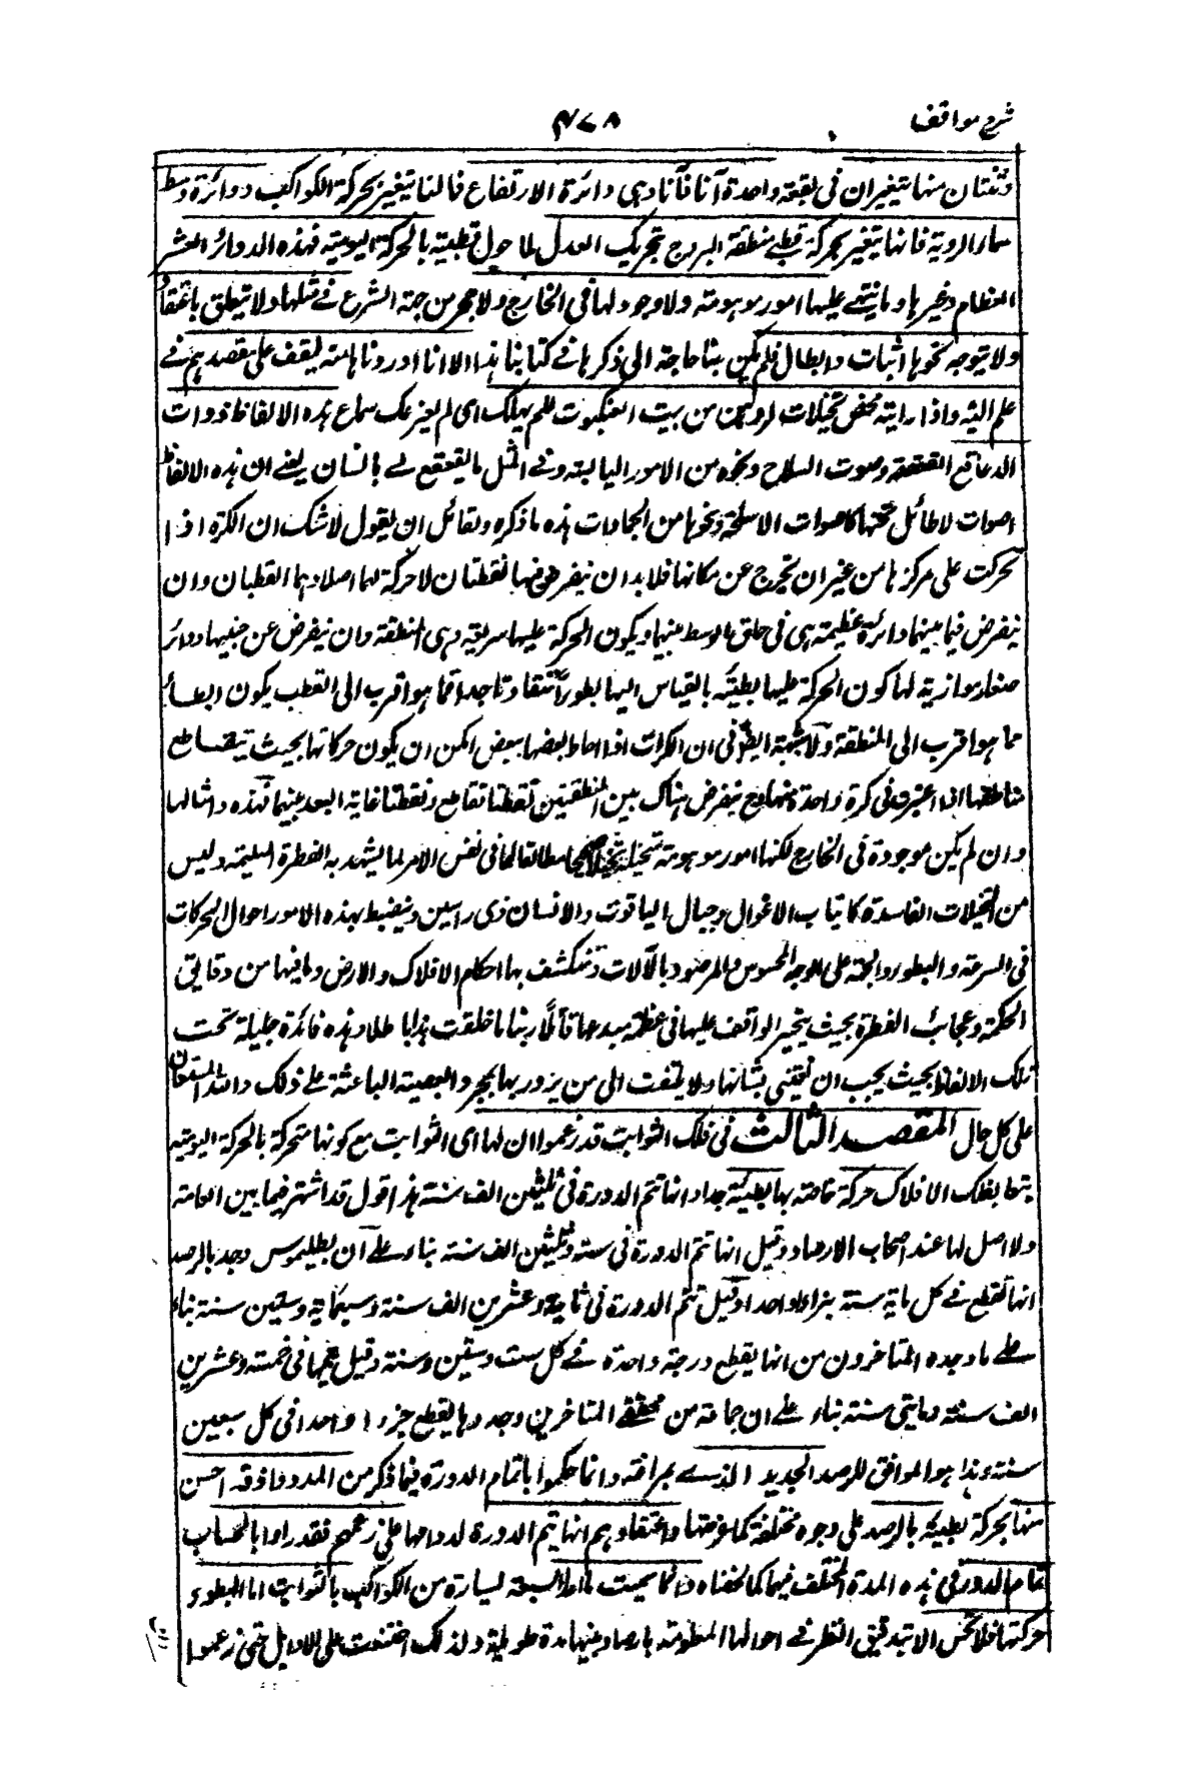 شرح مواقف ۴۷۸
وثنتان منها يتغيران فى بقعة واحدة آنا فآنا وهى دائرة الارتفاع فانها يتغير بحركة الكواكب ودائرة وسط
سماء الروية فانها يتغير بحركة قطبى منطقة البروج بتحريك المعدل لها حول قطبيه بالحركة اليومية فهذه الدوائر العشر
العظام وغيرها وما يبتنى عليها امور موهومة ولا وجود لها فى الخارج ولا حجر من جهة الشرع فى مثلها ولا يتعلق باعتقاد
ولا يتوجه نحوها اثبات وابطال فلم يكن بنا حاجة الى ذكرها فى كتابنا هذا الا انا اوردناها منه ليقف على مقصدهم فى
علم الهيئة واذا رايته محض تخيلات اوهن من بيت العنكبوت فلم يهلك اى لم يفزعك سماع هذه الالفاظ ذوات
القعاقع القعقعة وصوت السلاح ونحوه من الامور اليابسة وفى المثل ما يقعقع لى بالشنان يعنى ان هذه الالفاظ
اصوات لا طائل تحتها كاصوات الاسلحة ونحوها من الجمادات هذه ما ذكره ولقائل ان يقول لا شك ان الكرة اذا
تحركت على مركزها من غير ان تخرج عن مكانها فلا بد ان يفرض فيها نقطتان لا حركة لهما اصلا وهما القطبان وان
يفرض فيما بينهما دائرة عظيمة هى فى حاق الوسط بينهما ويكون الحركة عليها سريعة وهى المنطقة وان يفرض عن جنبيها دوائر
صغار موازية لها كون الحركة عليها بطيئة بالقياس اليها بطوءا متفاوتا جدا فما هو اقرب الى القطب يكون ابطأ
مما هو اقرب الى المنطقة ولا شبهة ايضا فى ان الكرات اذا احاط بعضها ببعض امكن ان يكون حركاتها بحيث يتقاطع
مناطقها اذا اعتبرت فى كرة واحدة منها وح يفرض هناك بين المنطقتين نقطتا تقاطع ونقطتا غاية البعد بينهما فهذه وامثالها
وان لم يكن موجودة فى الخارج لكنها امور موهومة متخيلة تخيلا صحيحا مطابقا لما فى نفس الامر لما يشهد به الفطرة السليمة وليس
من التخيلات الفاسدة كانياب الاغوال وجبال الياقوت والانسان ذى راسين وينضبط بهذه الامور احوال الحركات
فى السرعة والبطوء والجهة على الوجه المحسوس والمرصود بالآلات وتنكشف بها احكام الافلاك والارض وما فيها من دقائق
الحكمة وعجائب الفطرة بحيث يتحير الواقف عليها فى عظمة مبدعها قائلا ربنا ما خلقت هذا باطلا وهذه فائدة جليلة تحت
تلك الالفاظ بحيث يجب ان يعتنى بشانها ولا يلتفت الى من يزدريها بمجرد العصبية الباعثة على ذلك والله المستعان
على كل حال المقصد الثالث فى فلك الثوابت قد زعموا ان لها اى الثوابت مع كونها متحركة بالحركة اليومية
بتبعا بفلك الافلاك حركة خاصة بها بطيئة جدا وانها تتم الدورة فى ثلثين الف سنة هذا قول قد اشتهر فيما بين العامة
ولا اصل لها عند اصحاب الارصاد وقيل انها تتم الدورة فى ستة وثلثين الف سنة بناء على ان بطليموس وجد بالرصد
انها تقطع فى كل ماية سنة جزءا واحدا وقيل تتم الدورة فى ثلثة وعشرين الف سنة وسبعماية وستين سنة بناء
على ما وجده المتاخرون من انها يقطع درجة واحدة فى كل ست وستين سنة وقيل يتمها فى خمسة وعشرين
الف سنة ومايتى سنة بناء على ان جماعة من محققى المتاخرين وجدوها يقطع جزءا واحدا فى كل سبعين
سنة وهذا هو الموافق للرصد الجديد الذى بمراغة وانما حكموا باتمام الدورة فيما ذكر من المدد لما وقد احس
منها بحركة بطيئة بالرصد على وجوه مختلفة كما عرفتها واعتقادهم انها يتم الدورة لدوامها على زعمهم فقدروا بالحساب
تمام الدور فى هذه المدة المختلف فيها كما لخصناه وانما سميت ماعدا السبعة السيارة من الكواكب بالثوابت اما لبطوء
حركتها فلا تحس الا بتدقيق النظر فى احوالها المعلومة بارصاد بينها مدة طويلة ولذلك اختفت على الاوايل حتى زعموا